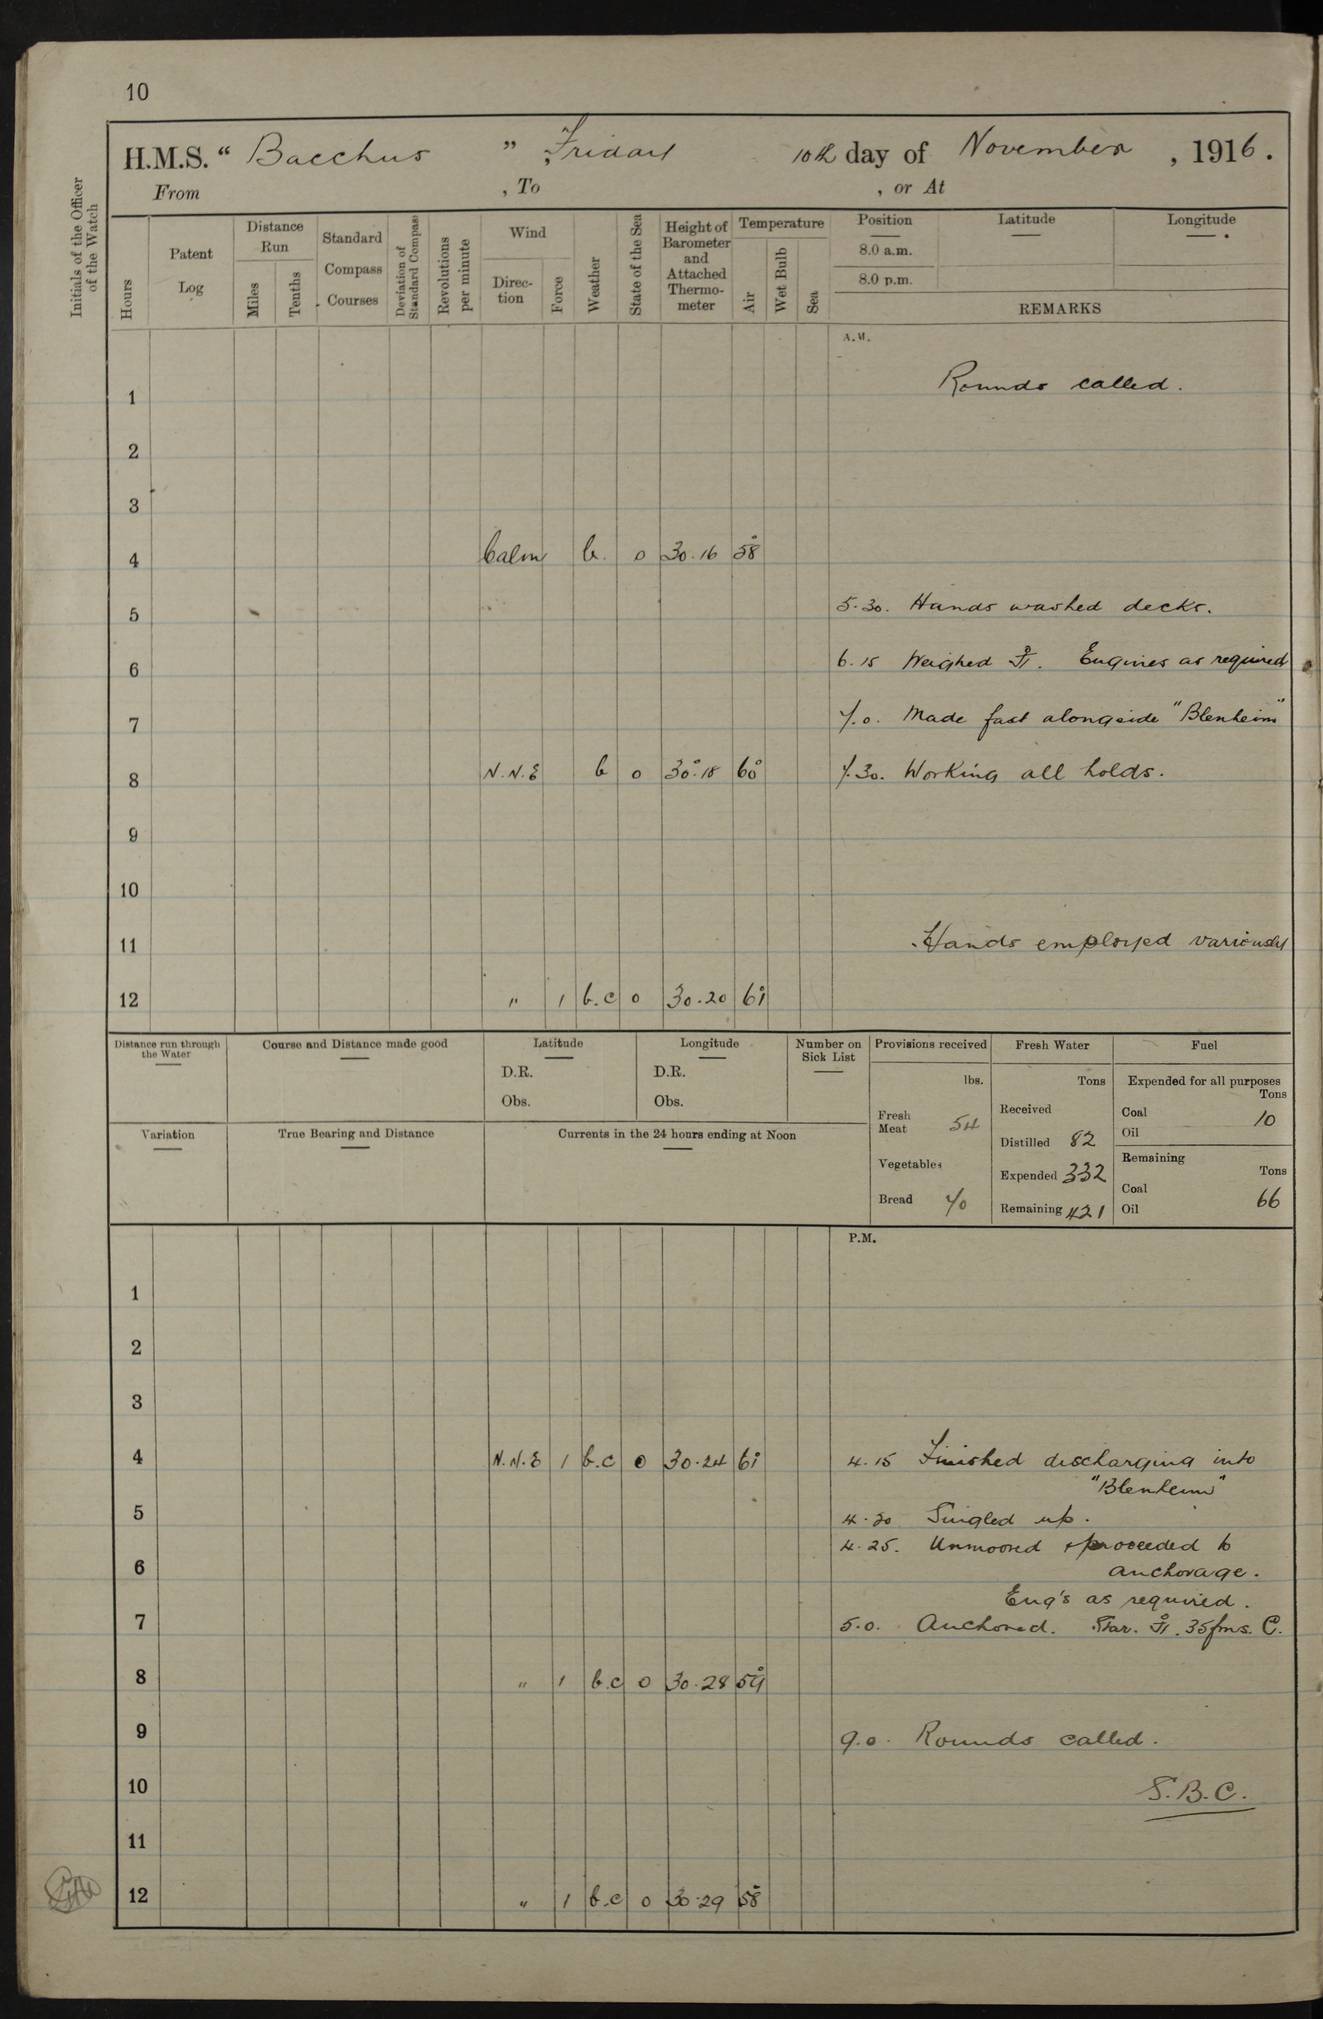 10
H.M.S. "Bacchus" Friday 10th day of November, 1916.
From , To , or At
Initials of the Officer of the Watch
Hours
Patent Log
Distance Run
Miles
Tenths
Standard Compass Courses
Deviation of Standard Compass
Revolutions per minute
Wind
Direction
Force
Weather
State of the Sea
Height of Barometer and Attached Thermometer
Temperature
Air
Wet Bulb
Sea
Position Latitude Longitude
8.0 a.m.
8.0 p.m.
REMARKS
A.M.
1 Rounds called.
2
3
4 Calm b. 0 30.16 58°
5 5.30. Hands washed decks.
6 6.15 Weighed ⚓. Engines as required
7 7.0. Made fast alongside "Blenheim"
8 N.N.E b 0 30.18 60° 7.30. Working all holds.
9
10
11 Hands employed variously
12 " 1 b.c 0 30.20 61°
Distance run through the Water
Course and Distance made good
Latitude
D.R.
Obs.
Longitude
D.R.
Obs.
Number on Sick List
Provisions received
lbs.
Fresh Meat 54
Vegetables
Bread 70
Fresh Water
Tons
Received
Distilled 82
Expended 332
Remaining 421
Fuel
Expended for all purposes
Tons
Coal 10
Oil
Remaining
Tons
Coal 66
Oil
Variation
True Bearing and Distance
Currents in the 24 hours ending at Noon
P.M.
1
2
3
4 N.N.E 1 b.c 0 30.24 61° 4.15 Finished discharging into
"Blenheim"
5 4.20 Singled up.
4.25. Unmoored & proceeded to
6 anchorage.
Eng's as required.
7 5.0. Anchored. Star. ⚓. 35 fms. C.
8 " 1 b.c 0 30.28 59°
9 9.0. Rounds called.
10 S.B.C.
11
12 " 1 b.c 0 30.29 58°